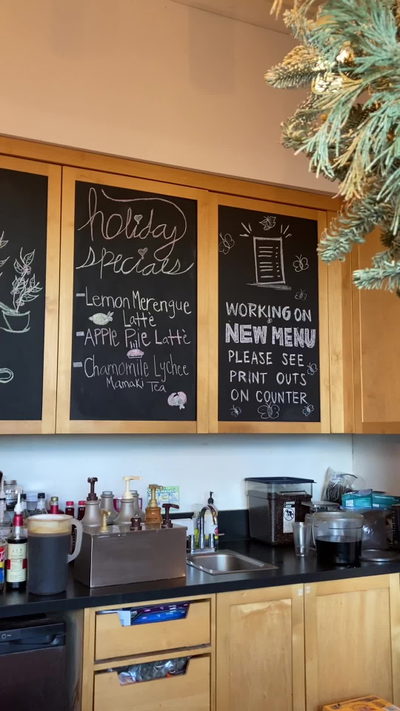 holiday
specials
- Lemon Merengue
Latte
- APPLE Pie Latte
- Chamomile Lychee
Mamaki Tea
WORKING ON
NEW MENU
PLEASE SEE
PRINT OUTS
ON COUNTER